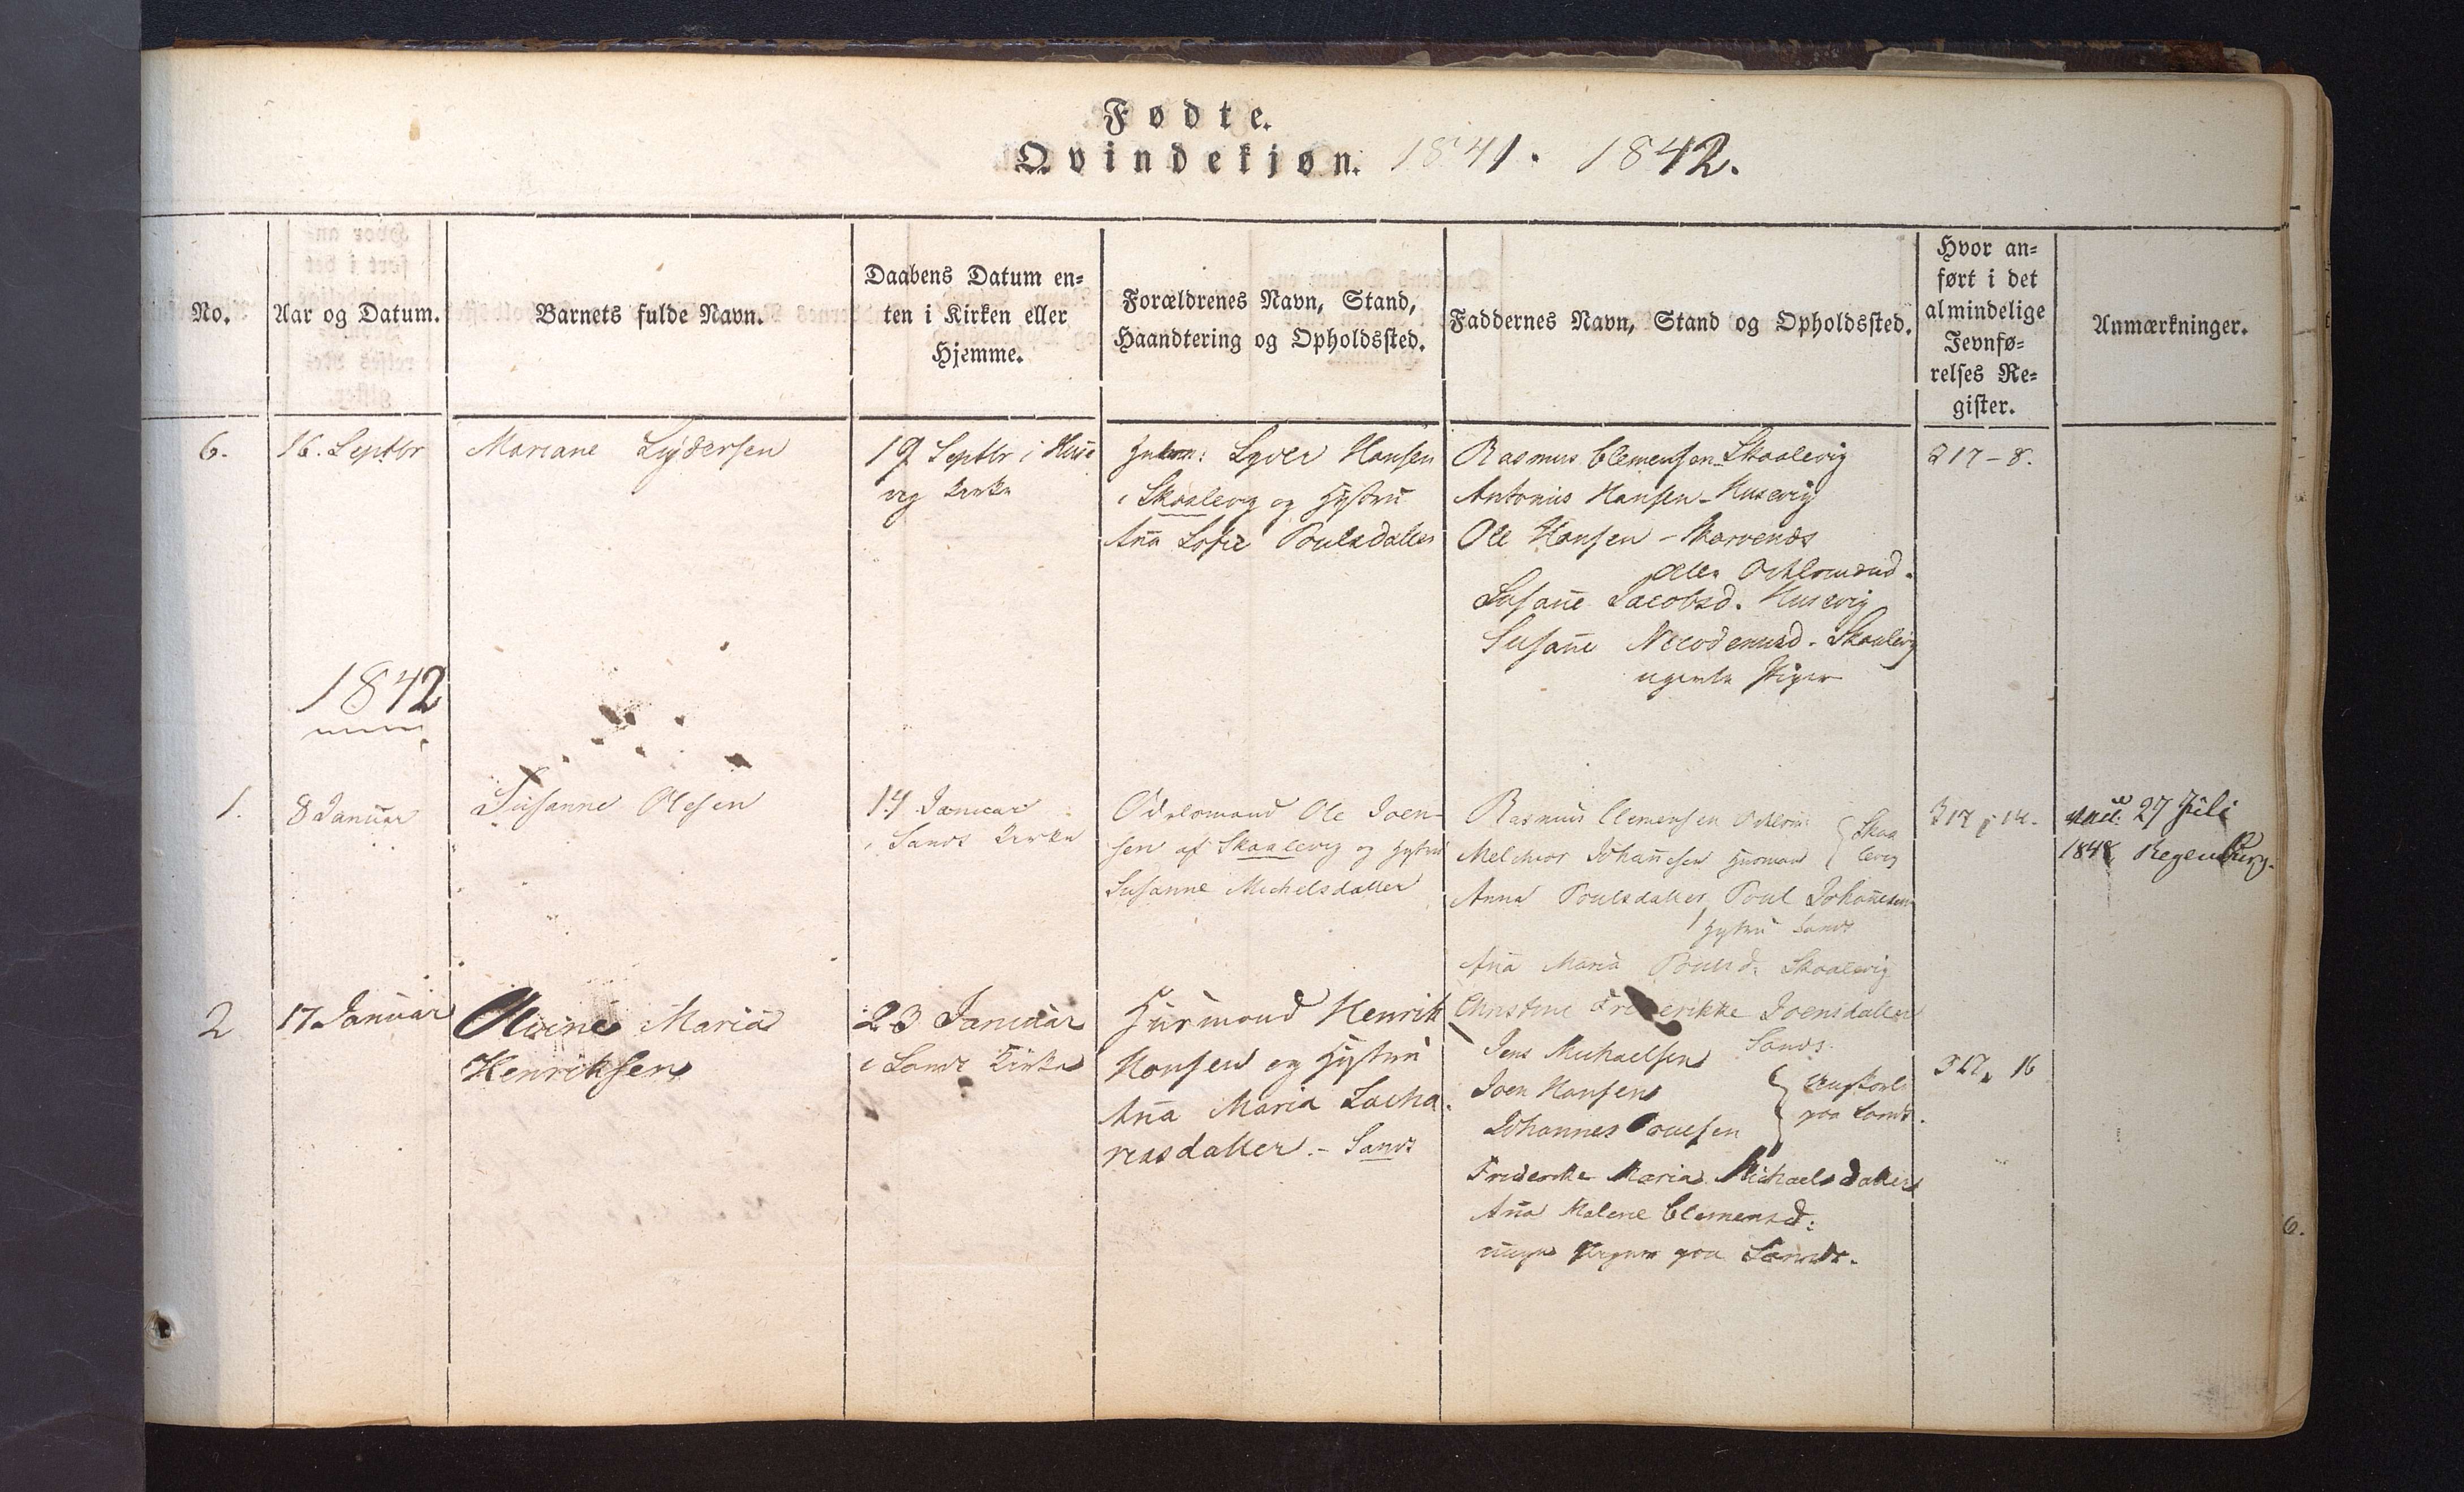 Fødte.
Qvindekjøn. 1841. 1842.
No.
Aar og Datum.
Barnets fulde Navn.
Daabens Datum en-
ten i Kirken eller
Hjemme.
Forældrenes Navn, Stand,
Haandtering og Opholdssted.
Faddernes Navn, Stand og Opholdssted.
Hvor an-
ført i det
almindelige
Jevnfø-
relses Re-
gister.
Anmærkninger.
6.
16. Septbr
Mariane Lydersen
19 Septbr i Huse
vig Kirke
Lyder Hansen
i Skaalevig og Hystru
Aña Sofie Poulsdatter
Rasmus Clemensen Skaalevig
Antonius Hansen - Husevig
Ole Hansen - Skarvenæs
alle
Susañe Jacobsd. Husevig
Susañe Nicodemusd. Skaalevig
ugivte Piger
217-8.
1842
1.
8 Januar
Susanne Olesen
14 Januar
i Sands Kirke
Odelsmand Ole Joen-
sen af Skaalevig og Hystru
Susanne Michelsdatter
Rasmus Clemensen
Melchior Johañesen Huusmand
Skaa
levig
Anna Poulsdatter Poul Johañesens
Hystru Sands
Aña Maria Poulsd: Skaalevig
Christine Frederikke Joensdatter
Sands.
317, 14.
27 Juli
1848 Regenburg.
2
17 Januar
Olvine Maria
Henriksen
23 Januar
i Sands Kirke
Huusmand Henrik
Hansen og Hystru
Aña Maria Zacha
riasdatter. - Sands
Jens Michaelsen
Joen Hansen
Johannes Poulsen
Ungkarle
paa Sands.
Frederikke Maria Michaelsdatter
Aña Malene Clemensd:
unge Piger paa Sands.
317, 16
6.